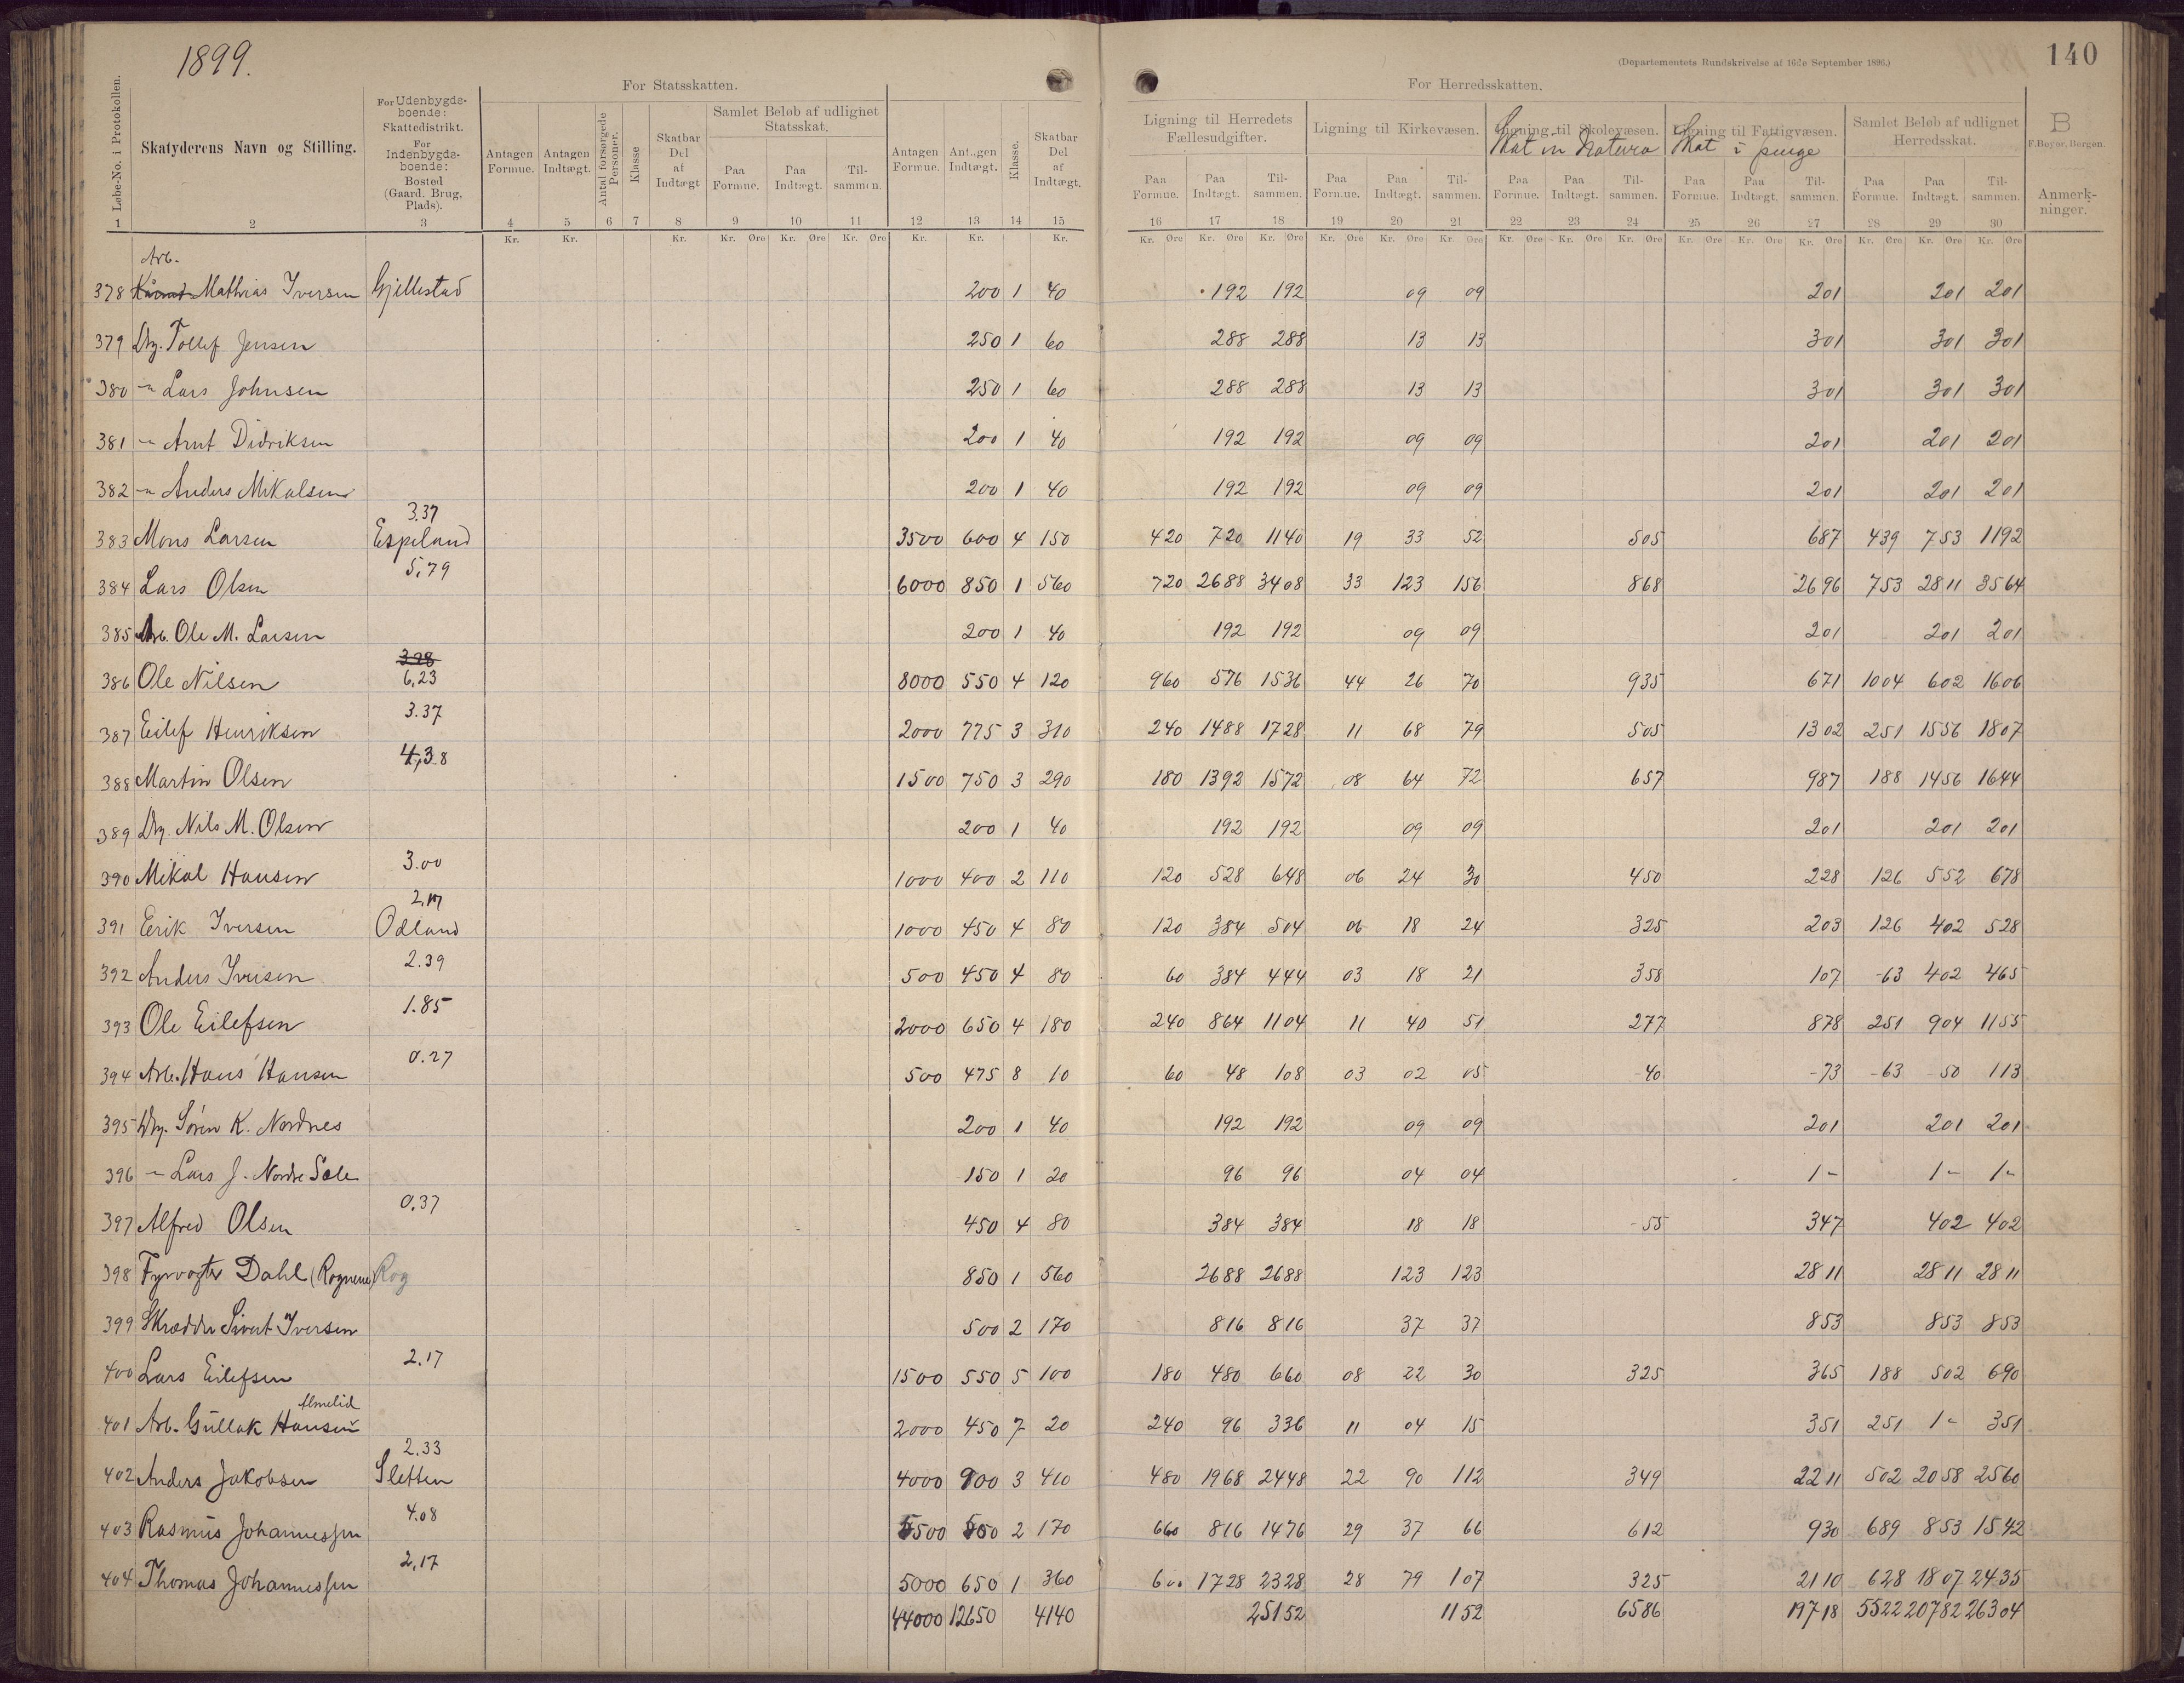 1899.
140
(Departementets Rundskrivelse af 16de September 1896.)
For Statsskatten.
For Herredsskatten.
Løbe-No. i Protokollen.
Skatyderens Navn og Stilling.
For Udenbygdsboende: Skattedistrikt. For Indenbygdsboende: Bosted (Gaard, Brug, Plads).
Antagen Formue.
Antagen Indtægt.
Antal forsørgede Personer.
Klasse
Skatbar Del af Indtægt
Samlet Beløb af udlignet Statsskat.
Paa Formue. Paa Indtægt. Tilsammen.
Antagen Formue.
Antagen Indtægt.
Klasse.
Skatbar Del af Indtægt.
Ligning til Herredets Fællesudgifter.
Paa Formue. Paa Indtægt. Tilsammen.
Ligning til Kirkevæsen.
Paa Formue. Paa Indtægt. Tilsammen.
Ligning til Skolevæsen.
Skat in Natura
Paa Formue. Paa Indtægt. Tilsammen.
Ligning til Fattigvæsen.
Skat i penge
Paa Formue. Paa Indtægt. Tilsammen.
Samlet Beløb af udlignet Herredsskat.
Paa Formue. Paa Indtægt. Tilsammen.
B
F. Beyer. Bergen.
Anmerkninger.
1 2 3 4 5 6 7 8 9 10 11 12 13 14 15 16 17 18 19 20 21 22 23 24 25 26 27 28 29 30
Kr. Kr. Kr. Kr. Øre Kr. Øre Kr. Øre Kr. Kr. Kr. Kr. Øre Kr. Øre Kr. Øre Kr. Øre Kr. Øre Kr. Øre Kr. Øre Kr. Øre Kr. Øre Kr. Øre Kr. Øre Kr. Øre Kr. Øre Kr. Øre Kr. Øre
Arb.
378 Mathias Iversen Gjellestad 200 1 40 192 192 09 09 201 201 201
379 Drg. Tollef Jensen 250 1 60 288 288 13 13 301 301 301
380 -"- Lars Johnsen 250 1 60 288 288 13 13 301 301 301
381 -"- Arnt Didriksen 200 1 40 192 192 09 09 201 201 201
382 -"- Anders Mikalsen 200 1 40 192 192 09 09 201 201 201
3.37
383 Mons Larsen Espeland 3500 600 4 150 420 720 1140 19 33 52 505 687 439 753 1192
5,79
384 Lars Olsen 6000 850 1 560 720 2688 3408 33 123 156 868 2696 753 2811 3564
385 Arb. Ole M. Larsen 200 1 40 192 192 09 09 201 201 201
3.98
386 Ole Nilsen 6,23 8000 550 4 120 960 576 1536 44 26 70 935 671 1004 602 1606
3.37
387 Eilef Henriksen 2000 775 3 310 240 1488 1728 11 68 79 505 1302 251 1556 1807
4,38
388 Martin Olsen 1500 750 3 290 180 1392 1572 08 64 72 657 987 188 1456 1644
389 Drg. Nils M. Olsen 200 1 40 192 192 09 09 201 201 201
3.00
390 Mikal Hansen 1000 400 2 110 120 528 648 06 24 30 450 228 126 552 678
2,17
391 Erik Iversen Odland 1000 450 4 80 120 384 504 06 18 24 325 203 126 402 528
2.39
392 Anders Iversen 500 450 4 80 60 384 444 03 18 21 358 107 -63 402 465
1.85
393 Ole Eilefsen 2000 650 4 180 240 864 1104 11 40 51 277 878 251 904 1155
0.27
394 Arb. Hans Hansen 500 475 8 10 60 48 108 03 02 05 -40 -73 -63 -50 113
395 Drg. Søren K. Nordnes 200 1 40 192 192 09 09 201 201 201
396 -"- Lars J. Nordre Sæle 150 1 20 96 96 04 04 1- 1- 1-
0.37
397 Alfred Olsen 450 4 80 384 384 18 18 -55 347 402 402
398 Fyrvogter Dahl (Rognene) Rog 850 1 560 2688 2688 123 123 2811 2811 2811
399 Skrædder Sivert Iversen 500 2 170 816 816 37 37 853 853 853
2.17
400 Lars Eilefsen 1500 550 5 100 180 480 660 08 22 30 325 365 188 502 690
Almelid
401 Arb. Gullak Hansen 2000 450 7 20 240 96 336 11 04 15 351 251 1- 351
2.33
402 Anders Jakobsen Sletten 4000 900 3 410 480 1968 2448 22 90 112 349 2211 502 2058 2560
4.08
403 Rasmus Johannessen 5500 500 2 170 660 816 1476 29 37 66 612 930 689 853 1542
2,17
404 Thomas Johannessen 5000 650 1 360 600 1728 2328 28 79 107 325 2110 628 1807 2435
44000 12650 4140 25152 1152 6586 19718 5522 20782 26304